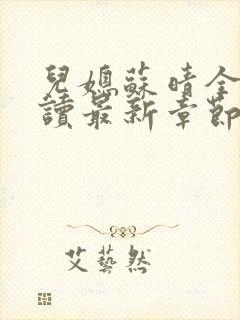 兒媳蘇晴全
讀最新章節
艾藝然